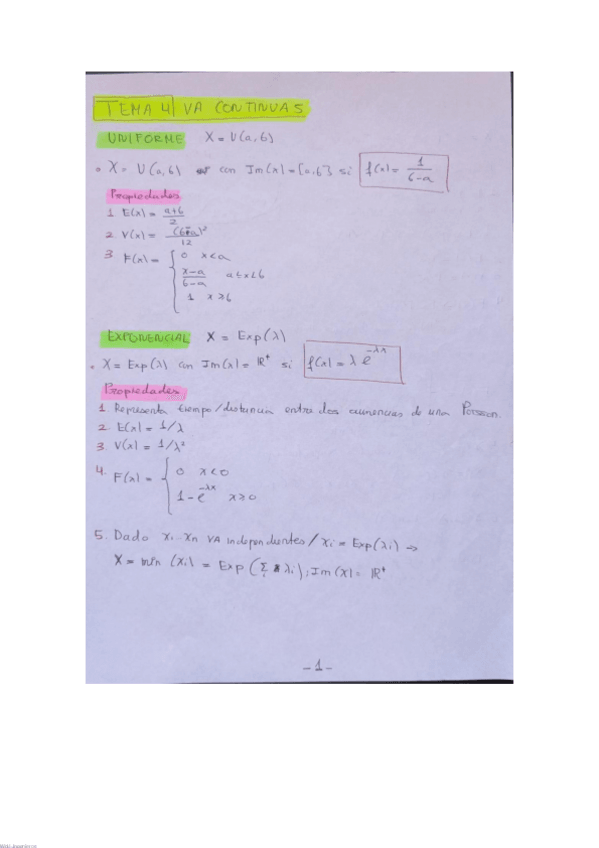 TEMA 4 VA CONTINUAS
UNIFORME X = U(a,b)
• X = U(a,b) con Im(x) = [a,b] si f(x) = 1/(b-a)
Propiedades
1 E(x) = (a+b)/2
2 V(x) = (b-a)²/12
3 F(x) = { 0 x<a
(x-a)/(b-a) a≤x<b
1 x≥b
EXPONENCIAL X = Exp(λ)
• X = Exp(λ) con Im(x) = ℝ⁺ si f(x) = λ e^(-λx)
Propiedades
1. Representa tiempo/distancia entre dos ocurrencias de una Poisson.
2. E(x) = 1/λ
3. V(x) = 1/λ²
4. F(x) = { 0 x<0
1 - e^(-λx) x≥0
5. Dado x₁...xₙ VA independientes / xᵢ = Exp(λᵢ) ⇒
X = min (xᵢ) = Exp (Σᵢ λᵢ) ; Im(x) = ℝ⁺
- 1 -